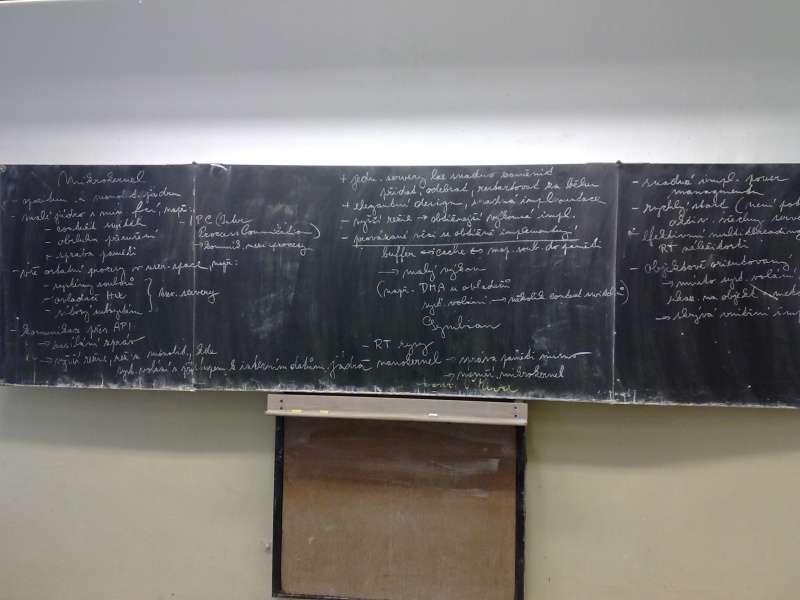 Mikrokernel
- opakem je monolit. jádro
- malé jádro s min. fcí, např:
- context switch
- obsluha přerušení
- správa paměti
- IPC (Inter
Process Communication)
→ komunik. mezi procesy
- vše ostatní procesy v user-space, např:
- systémy souborů
- ovladače HW
- síťový subsystém
} tzv. servery
- komunikace přes API
→ zasílání zpráv
→ vyšší režie, než u monolit., kde
syst. volání s přístupem k interním datům jádra
+ jedn. servery lze snadno zaměnit
přidat, odebrat, restartovat za běhu
+ elegantní design, snadná implementace
- vyšší režie → obtížnější výkonná impl.
- provázané věci se obtížně implementují
buffer cache ↔ map. soub. do paměti
→ malý výkon
(např. DMA u ovladačů
syst. volání → několik context switchů)
Symbian
- RT rysy
- nanokernel → správa paměti mimo
→ není mikrokernel
- snadná impl. power
managementu
- rychlý start (není
aktiv. všechny
- efektivní multithreading
RT záležitosti
- objektově orientovaný
→ místo syst. volání
ukaz. na objekt
→ skrývá vnitřní